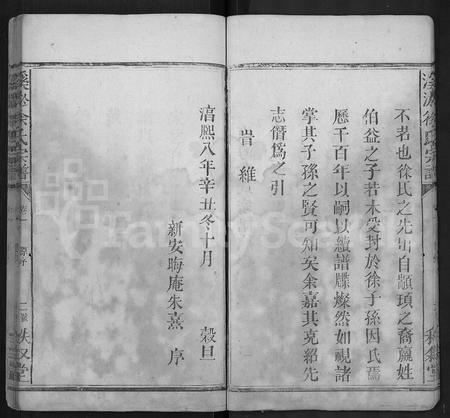 不若也徐氏之先出自顓頊之裔嬴姓
伯益之子若木受封於徐子孫因氏焉
歷千百年以嗣以續譜牒燦然如視諸
掌其子孫之賢可知矣余嘉其克紹先
志僭爲之引
旹維
淳熙八年辛丑冬十月 穀旦
新安晦庵朱熹 序
徐氏宗譜
卷一
FamilySearch